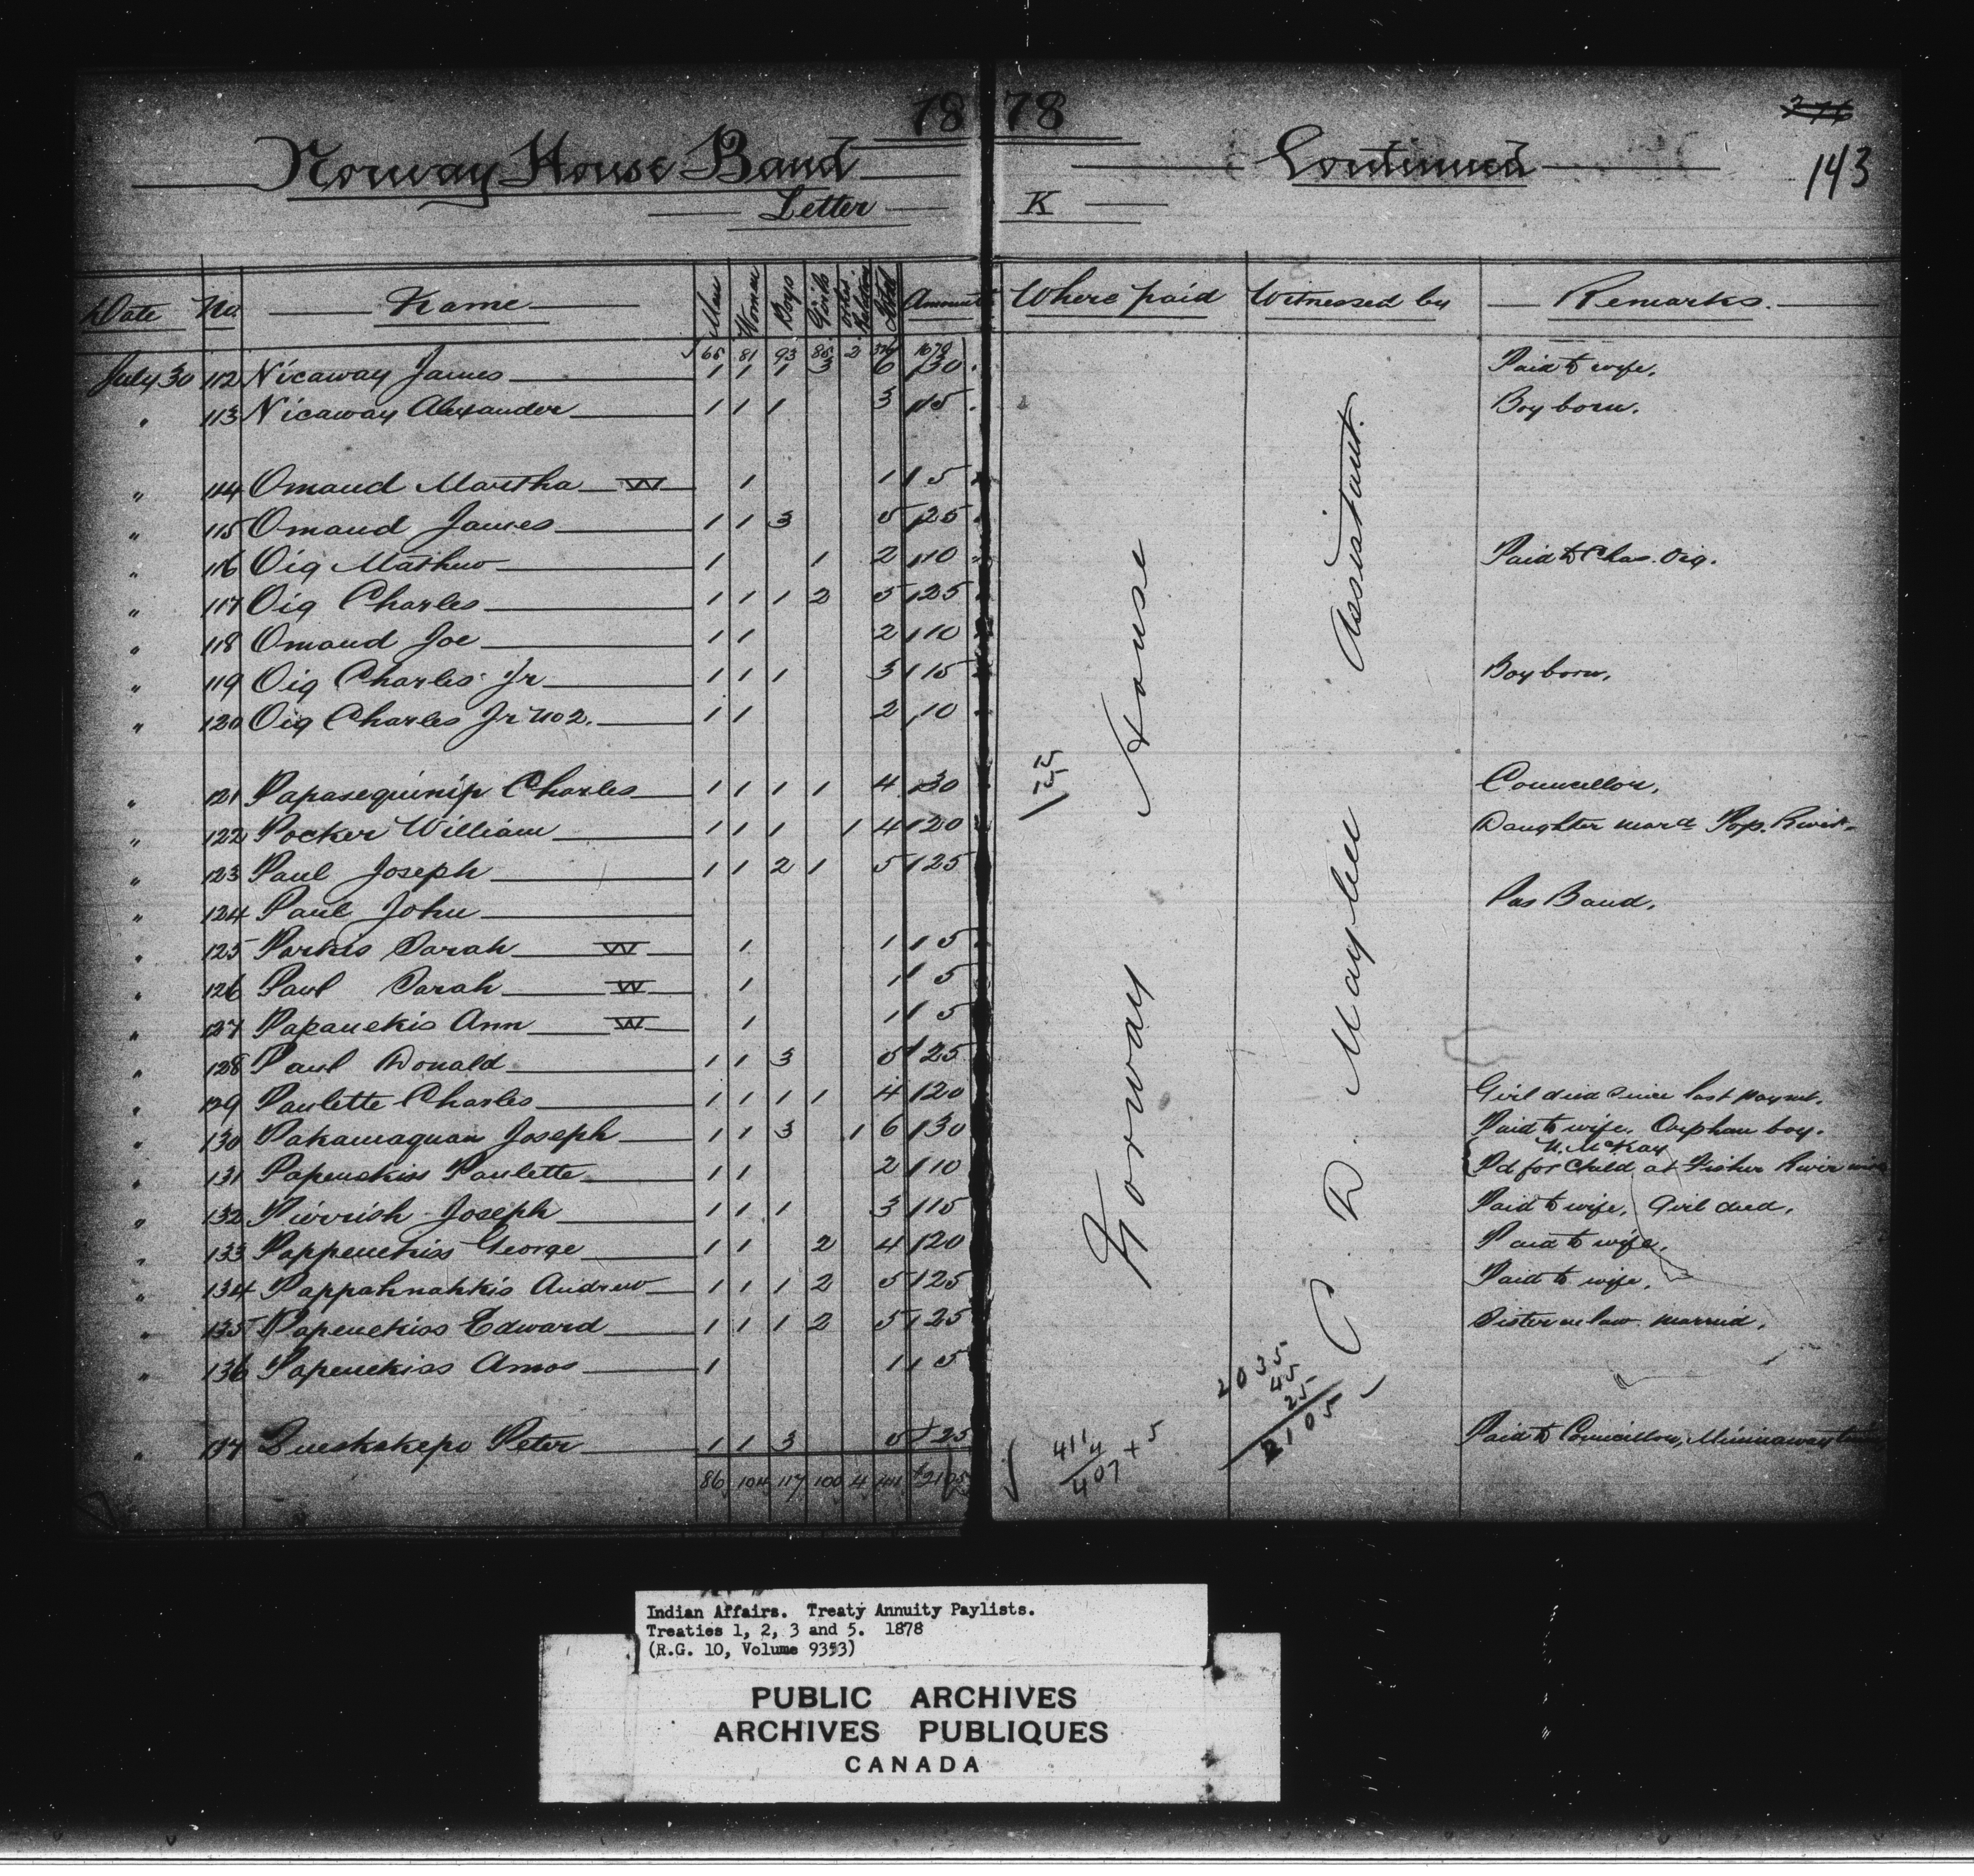 1878
276
143
Norway House Band Continued
Letter K
Date No. Name Men Women Boys Girls Other Relatives Total Amount Where paid Witnessed by Remarks
65 81 93 85 2 326 1670
July 30 112 Nicaway James 1 1 1 3 6 30 Paid to wife.
" 113 Nicaway Alexander 1 1 1 3 15 Boy born.
" 114 Omand Martha W 1 1 5
" 115 Omand James 1 1 3 5 25
" 116 Oig Mathew 1 1 2 10 Paid to Chas. Oig.
" 117 Oig Charles 1 1 1 2 5 25
" 118 Omand Joe 1 1 2 10
" 119 Oig Charles Jr 1 1 1 3 15 Boy born.
" 120 Oig Charles Jr No 2. 1 1 2 10
" 121 Papasequinip Charles 1 1 1 1 4 30 Councillor.
" 122 Pocker William 1 1 1 1 4 20 Daughter mard Pop. River.
" 123 Paul Joseph 1 1 2 1 5 25
" 124 Paul John Pas Band.
" 125 Parkis Sarah W 1 1 5
" 126 Paul Sarah W 1 1 5
" 127 Papanekis Ann W 1 1 5
" 128 Paul Donald 1 1 3 5 25
" 129 Paulette Charles 1 1 1 1 4 20 Girl died since last paymt.
" 130 Pakamaquan Joseph 1 1 3 1 6 30 Paid to wife. Orphan boy.
N. McKay
" 131 Papenekiss Paulette 1 1 2 10 Pd for Child at Fisher River
" 132 Pierrish Joseph 1 1 1 3 15 Paid to wife, Girl died.
" 133 Pappenekiss George 1 1 2 4 20 Paid to wife.
" 134 Pappahnahkis Andrew 1 1 1 2 5 25 Paid to wife.
" 135 Papenekiss Edward 1 1 1 2 5 25 Sister in law married.
" 136 Papenekiss Amos 1 1 5
" 137 Queskekepo Peter 1 1 3 5 25 Paid to Councillor, Minnaway
86 104 117 100 4 411 $2105
Norway House
C. D. Maybee Assistant.
15
15
2035
45
25
2105
411
4
407 + 5
Indian Affairs. Treaty Annuity Paylists.
Treaties 1, 2, 3 and 5. 1878
(R.G. 10, Volume 9353)
PUBLIC ARCHIVES
ARCHIVES PUBLIQUES
CANADA